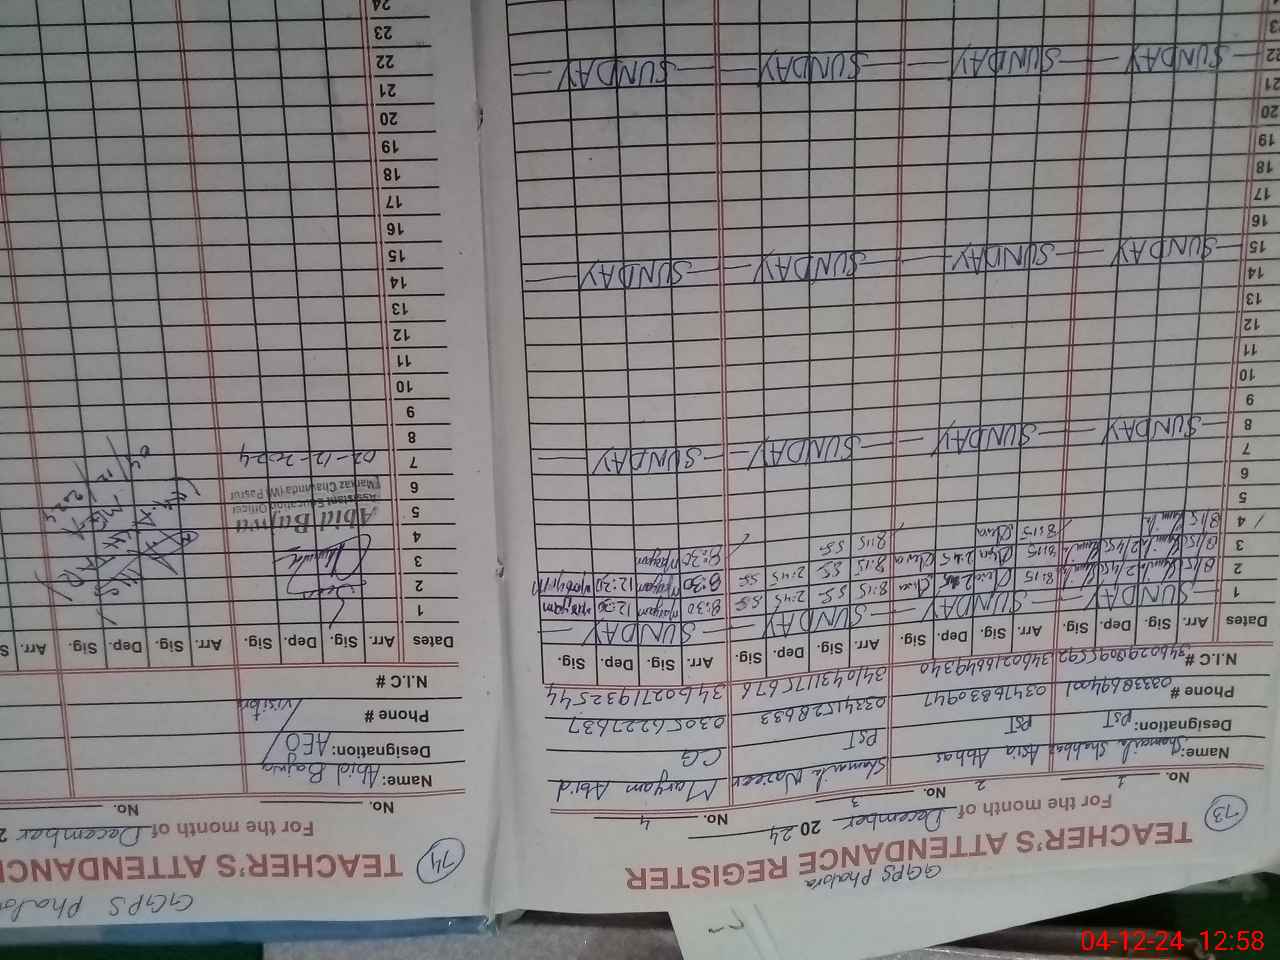 GGPS Phalora
TEACHER'S ATTENDANCE REGISTER
73
For the month of December 2024
No. 1
No. 2
No. 3
No. 4
Name: Shamaila Shahbaz
Asia Abbas
Shamila Nazeer
Maryam Abid
Designation: PST
PST
PST
CG
Phone # 03338694001
03476830947
03341528633
03056227637
N.I.C #
3460216649340
3410431175676
3460271932544
Dates Arr. Sig. Dep. Sig. Arr. Sig. Dep. Sig. Arr. Sig. Dep. Sig. Arr. Sig. Dep. Sig.
1 SUNDAY SUNDAY SUNDAY SUNDAY
2 8:15 2:45 8:15 8:15 SS 2:45 SS 8:30 Maryam 12:30 Maryam
3 8:15 2:45 8:15 2:45 8:15 SS 2:45 SS 8:30 Maryam 12:30 Maryam
4 8:15 8:15 8:15 SS 8:30 Maryam
5
6
7
8 SUNDAY SUNDAY SUNDAY SUNDAY
9
10
11
12
13
14
15 SUNDAY SUNDAY SUNDAY SUNDAY
16
17
18
19
20
21
22 SUNDAY SUNDAY SUNDAY SUNDAY
GGPS Phalo
TEACHER'S ATTENDANC
74
For the month of December 2
No.
No.
Name: Abid Bajwa
Designation: AEO
Phone # Visitor
N.I.C #
Dates Arr. Sig. Dep. Sig. Arr. Sig. Dep. Sig. Arr. S
1
2 Seen
3
4
5 Abid Bajwa
Assistant Education Officer
6 Markaz Chawinda (W) Pasrur
7 02-12-2024
8
9
10
11
12
13
14
15
16
17
18
19
20
21
22
23
24
04-12-24 12:58